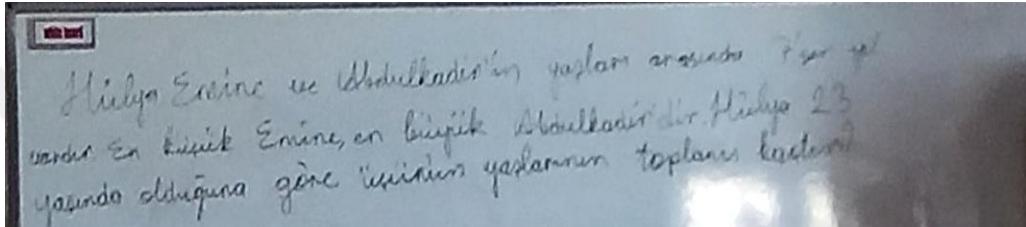 Hülya Emine ve Abdulkadir'in yaşları arasında 7'şer yıl
vardır En küçük Emine, en büyük Abdulkadir'dir. Hülya 23
yaşında olduğuna göre üçünün yaşlarının toplamı kaçtır?